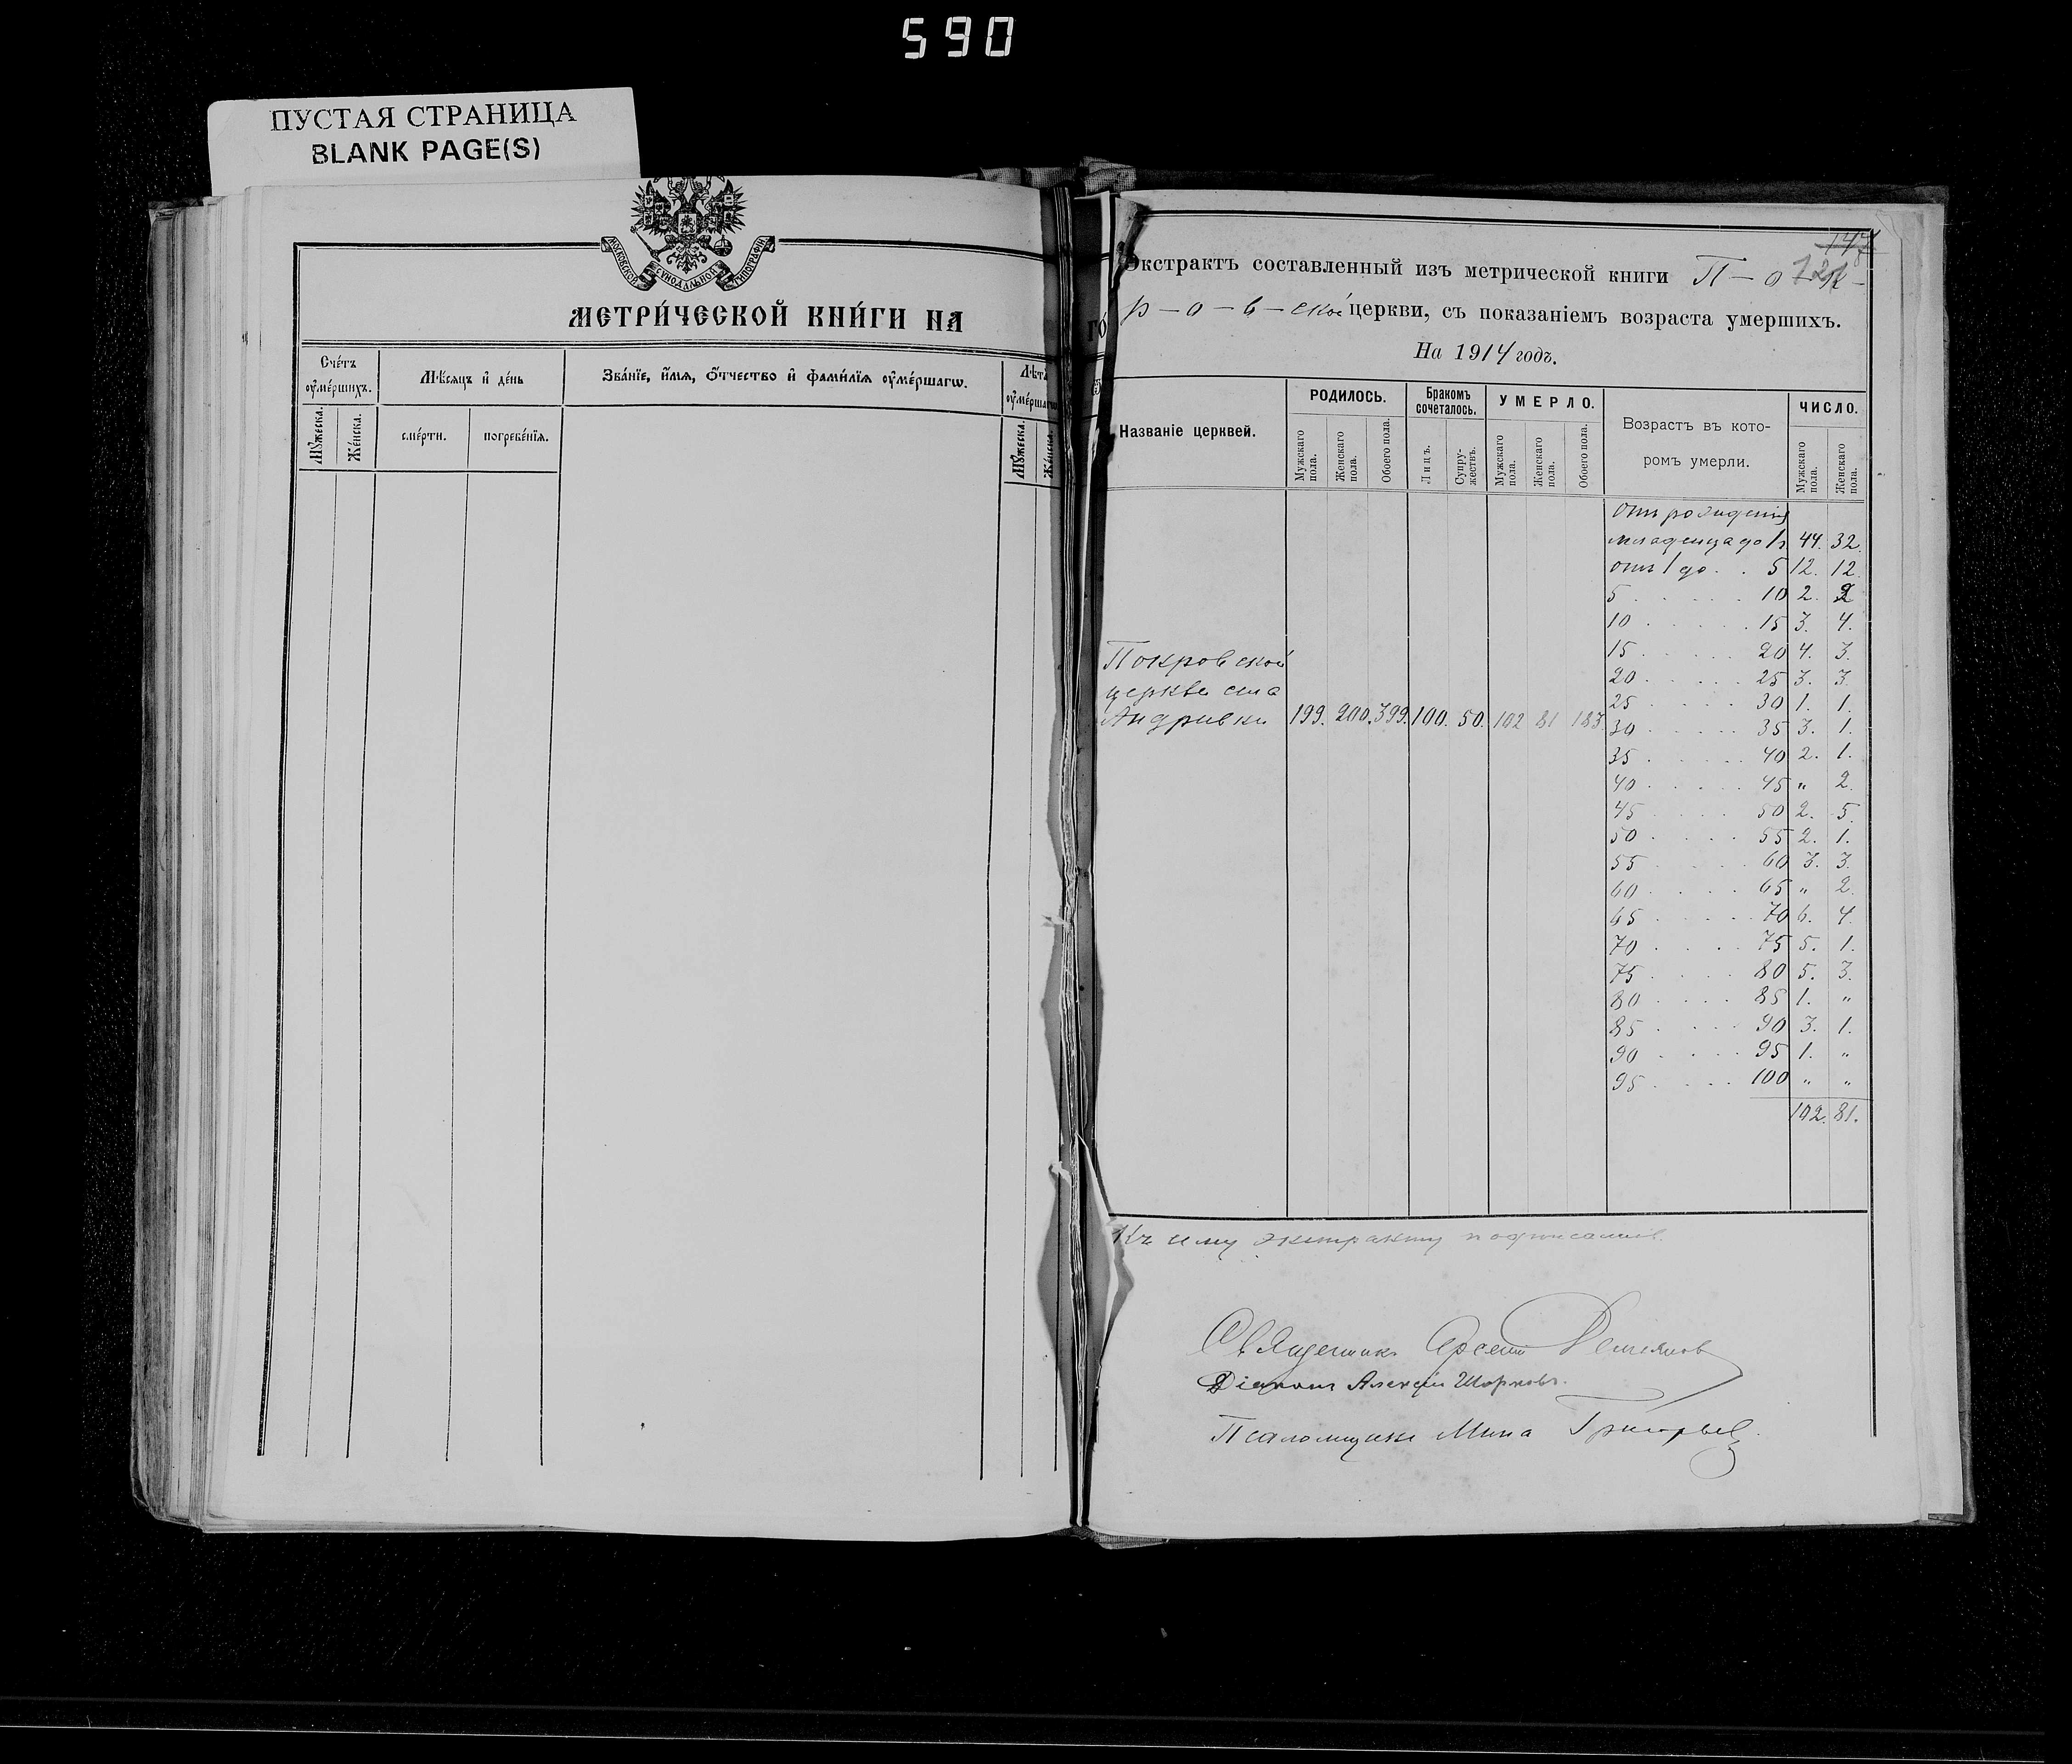 590
ПУСТАЯ СТРАНИЦА
BLANK PAGE(S)
МОСКОВСКОЙ СѴНОДАЛЬНОЙ ТИПОГРАФІИ
МЕТРИ́ЧЕСКОЙ КНИ́ГИ НА
Сче́тъ оу҆ме́ршихъ.
Мꙋ́жеска.
Же́нска.
Мѣ́сяцъ и҆ де́нь
сме́рти.
погребе́нїя.
Зва́нїе, и҆́мя, ѻ҆́тчество и҆ фами́лїя оу҆ме́ршагѡ.
Лѣ́тъ
оу҆ме́ршагѡ
Мꙋ́жеска.
Же́нска.
ГО́
Экстрактъ составленный изъ метрической книги П – о – к –
р – о – в – ской церкви, съ показаніемъ возраста умершихъ.
На 1914 годъ.
Названіе церквей.
РОДИЛОСЬ.
Мужскаго пола.
Женскаго пола.
Обоего пола.
Бракомъ сочеталось.
Лицъ.
Супружествъ.
УМЕРЛО.
Мужскаго пола.
Женскаго пола.
Обоего пола.
Возрастъ въ которомъ умерли.
ЧИСЛО.
Мужскаго пола.
Женскаго пола.
Покровской
церкви села
Андреевки 199. 200. 399. 100. 50. 102 81 183.
отъ рожденія
младенца до 1 г. 44. 32.
отъ 1 до . . 5 12. 12.
5 . . . . . 10 2. 2
10 . . . . . 15 3. 4.
15 . . . . . 20 4. 3.
20 . . . . . 25 3. 3.
25 . . . . 30 1. 1.
30 . . . . . 35 3. 1.
35 . . . . . 40 2. 1.
40 . . . . . 45 " 2.
45 . . . . 50 2. 5.
50 . . . . 55 2. 1.
55 . . . . 60 3. 3.
60 . . . . 65 " 2.
65 . . . . . 70 6. 4.
70 . . . . 75 5. 1.
75 . . . . 80 5. 3.
80 . . . . 85 1. "
85 . . . . 90 3. 1.
90 . . . . 95 1. "
95 . . . . 100 " "
102. 81.
Къ сему экстракту подписались
Священникъ Арсеній
Діаконъ Алексѣй
Псаломщикъ Мина Григорьевъ